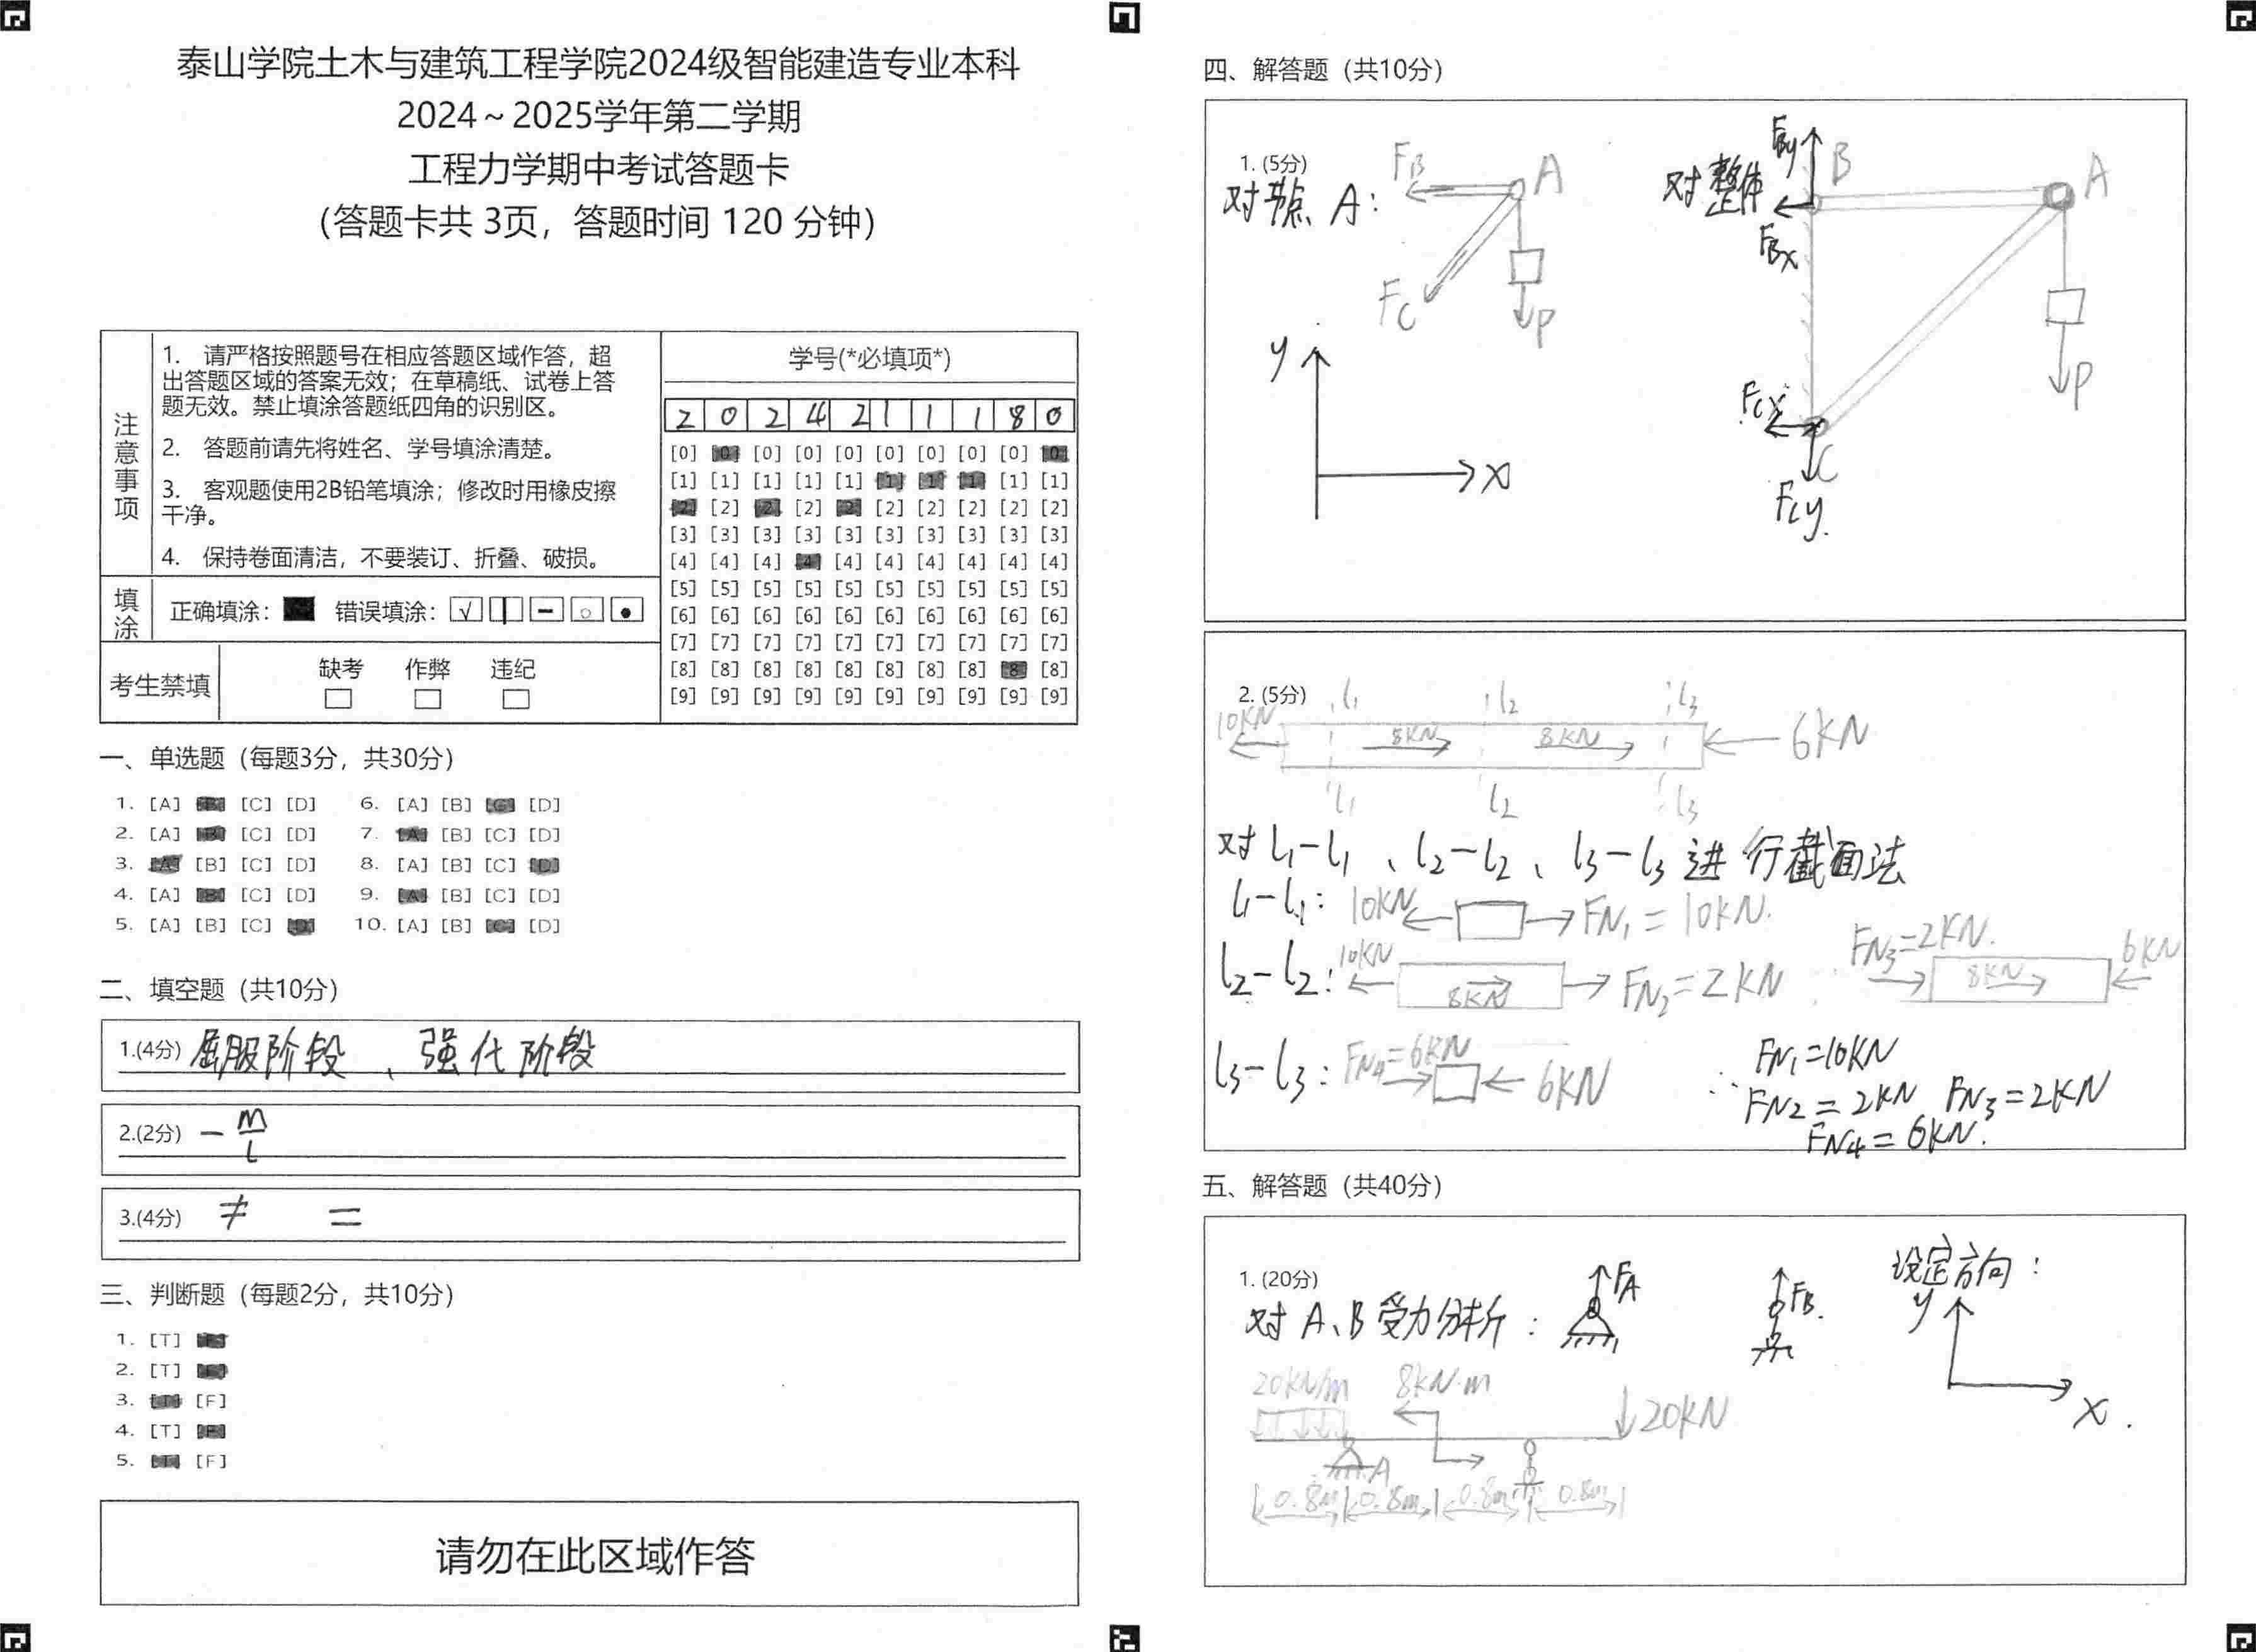 泰山学院土木与建筑工程学院2024级智能建造专业本科
2024～2025学年第二学期
工程力学期中考试答题卡
（答题卡共 3页，答题时间 120 分钟）
注意事项
1. 请严格按照题号在相应答题区域作答，超
出答题区域的答案无效；在草稿纸、试卷上答
题无效。禁止填涂答题纸四角的识别区。
2. 答题前请先将姓名、学号填涂清楚。
3. 客观题使用2B铅笔填涂；修改时用橡皮擦
干净。
4. 保持卷面清洁，不要装订、折叠、破损。
填涂
正确填涂： 错误填涂：
考生禁填
缺考 作弊 违纪
学号(*必填项*)
2 0 2 4 2 1 1 1 8 0
[0] [0] [0] [0] [0] [0] [0] [0] [0] [0]
[1] [1] [1] [1] [1] [1] [1] [1] [1] [1]
[2] [2] [2] [2] [2] [2] [2] [2] [2] [2]
[3] [3] [3] [3] [3] [3] [3] [3] [3] [3]
[4] [4] [4] [4] [4] [4] [4] [4] [4] [4]
[5] [5] [5] [5] [5] [5] [5] [5] [5] [5]
[6] [6] [6] [6] [6] [6] [6] [6] [6] [6]
[7] [7] [7] [7] [7] [7] [7] [7] [7] [7]
[8] [8] [8] [8] [8] [8] [8] [8] [8] [8]
[9] [9] [9] [9] [9] [9] [9] [9] [9] [9]
一、单选题（每题3分，共30分）
1. [A] [B] [C] [D] 6. [A] [B] [C] [D]
2. [A] [B] [C] [D] 7. [A] [B] [C] [D]
3. [A] [B] [C] [D] 8. [A] [B] [C] [D]
4. [A] [B] [C] [D] 9. [A] [B] [C] [D]
5. [A] [B] [C] [D] 10. [A] [B] [C] [D]
二、填空题（共10分）
1.(4分) 屈服阶段、强化阶段
2.(2分) －m/l
3.(4分) ≠ ＝
三、判断题（每题2分，共10分）
1. [T] [F]
2. [T] [F]
3. [T] [F]
4. [T] [F]
5. [T] [F]
请勿在此区域作答
四、解答题（共10分）
1. (5分)
对节点 A：
FB A
FC P
y
x
对整体
FBy B A
FBx
P
FCx
C
FCy
2. (5分)
l1 l2 l3
10KN 8KN 8KN 6KN
l1 l2 l3
对 l1－l1、l2－l2、l3－l3 进行截面法
l1－l1： 10KN FN1＝10KN.
l2－l2： 10KN 8KN FN2＝2KN
FN3＝2KN. 8KN 6KN
l3－l3： FN4＝6KN 6KN
∴ FN1＝10KN
FN2＝2KN FN3＝2KN
FN4＝6KN.
五、解答题（共40分）
1. (20分)
对 A、B 受力分析： FA FB.
设定方向：
y
x.
20KN/m 8KN·m 20KN
A
0.8m 0.8m 0.8m 0.8m